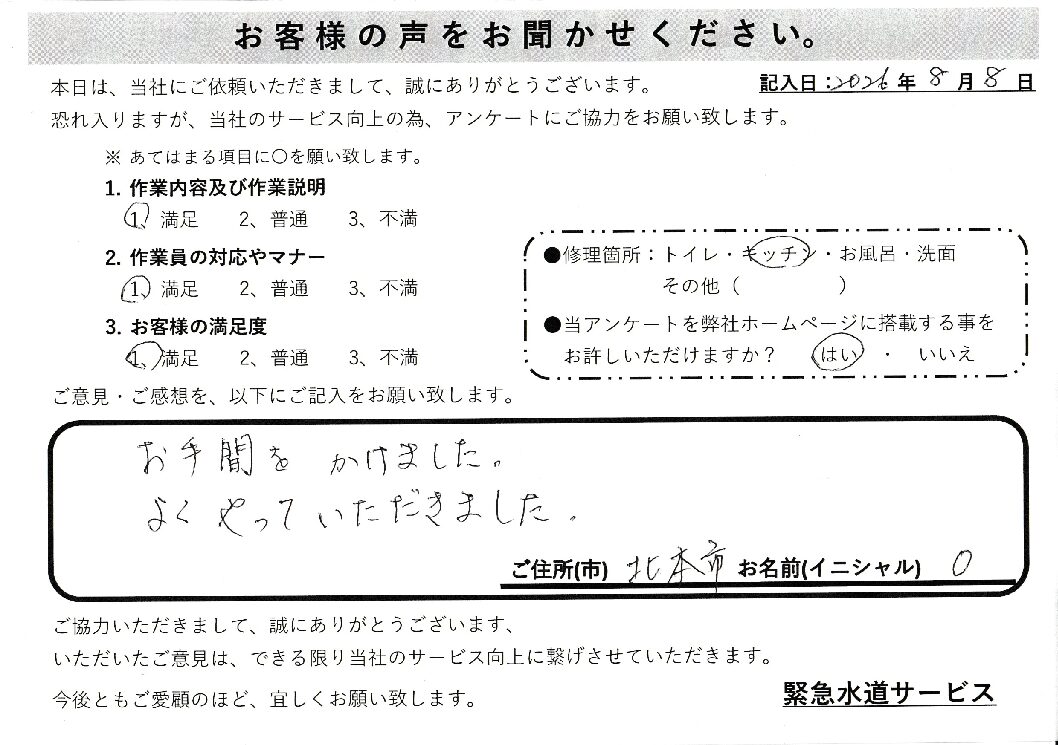 お客様の声をお聞かせください。
本日は、当社にご依頼いただきまして、誠にありがとうございます。
記入日：2026年8月8日
恐れ入りますが、当社のサービス向上の為、アンケートにご協力をお願い致します。
※ あてはまる項目に〇を願い致します。
1. 作業内容及び作業説明
1、満足 2、普通 3、不満
2. 作業員の対応やマナー
1、満足 2、普通 3、不満
3. お客様の満足度
1、満足 2、普通 3、不満
●修理箇所：トイレ・キッチン・お風呂・洗面
その他（ ）
●当アンケートを弊社ホームページに搭載する事を
お許しいただけますか？ はい ・ いいえ
ご意見・ご感想を、以下にご記入をお願い致します。
お手間を かけました。
よく やって いただきました。
ご住所(市) 北本市 お名前(イニシャル) O
ご協力いただきまして、誠にありがとうございます、
いただいたご意見は、できる限り当社のサービス向上に繋げさせていただきます。
今後ともご愛顧のほど、宜しくお願い致します。
緊急水道サービス